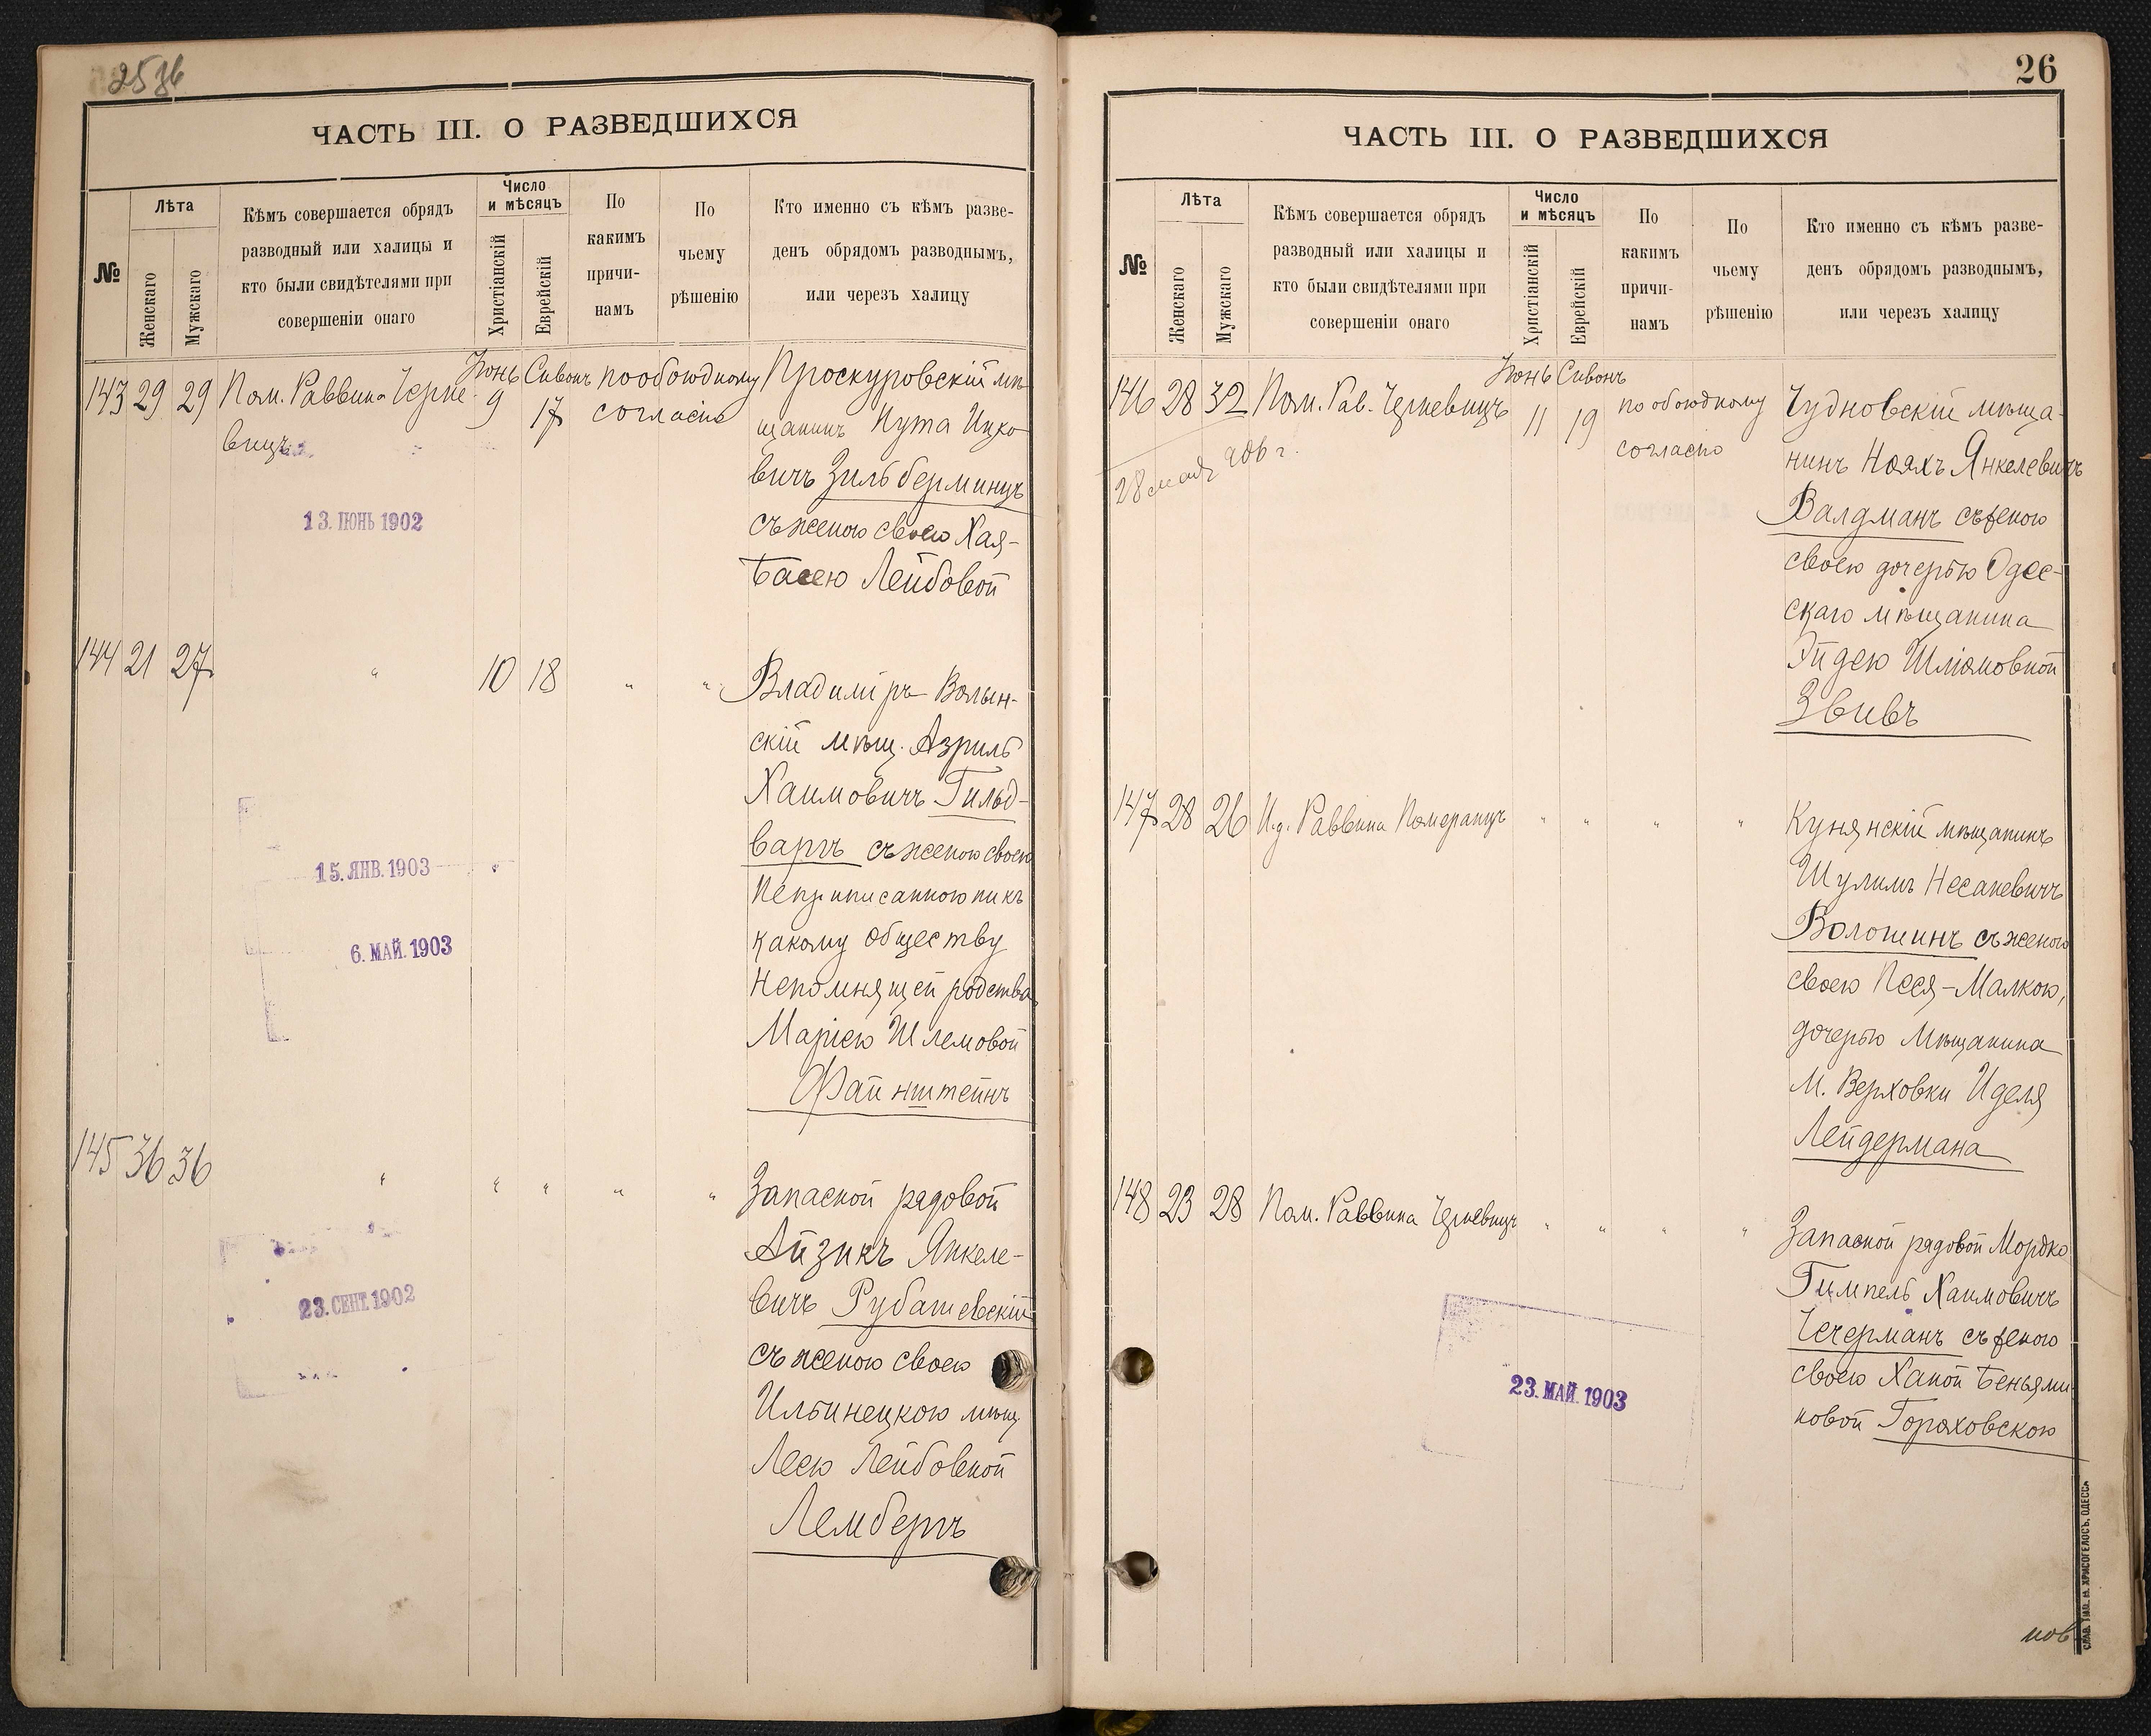 25 зб
ЧАСТЬ III. О РАЗВЕДШИХСЯ
№
Лѣта
Женскаго
Мужскаго
Кѣмъ совершается обрядъ
разводный или халицы и
кто были свидѣтелями при
совершеніи онаго
Число
и мѣсяцъ
Христіанскій
Еврейскій
По
какимъ
причи-
намъ
По
чьему
рѣшенію
Кто именно съ кѣмъ разве-
денъ обрядомъ разводнымъ,
или черезъ халицу
143 29 29 Пом. Раввина Черне- Іюнь 9 Сивонъ 17 по обоюдному Проскуровскій мѣ-
вицъ согласію щанинъ Нута Ицко-
вичъ Зильберминцъ
съ женою своею Хая-
Басею Лейбовой
13. ІЮНЬ 1902
144 21 27 " 10 18 " " Владиміръ Волын-
скій мѣщ. Азриль
Хаимовичъ Гильд-
варгъ съ женою своею
неприписанною ни къ
какому обществу
непомнящей родства
Маріею Шлемовой
Файнштейнъ
15. ЯНВ. 1903
6. МАЙ. 1903
145 36 36 " " " " " Запасной рядовой
Айзикъ Янкеле-
вичъ Рубашевскій
съ женою своею
Ильинецкою мѣщ.
Леею Лейбовной
Лембергъ
23. СЕНТ. 1902
26
ЧАСТЬ III. О РАЗВЕДШИХСЯ
№
Лѣта
Женскаго
Мужскаго
Кѣмъ совершается обрядъ
разводный или халицы и
кто были свидѣтелями при
совершеніи онаго
Число
и мѣсяцъ
Христіанскій
Еврейскій
По
какимъ
причи-
намъ
По
чьему
рѣшенію
Кто именно съ кѣмъ разве-
денъ обрядомъ разводнымъ,
или черезъ халицу
146 28 32 Пом. Рав. Черневицъ Іюнь 11 Сивонъ 19 по обоюдному Чудновскій мѣща-
согласію нинъ Нояхъ Янкелевичъ
28 906 г.
Валдманъ съ женою
своею дочерью Одес-
скаго мѣщанина
Эйдею Шліомовной
Звивъ
147 28 26 И.д. Раввина Померанцъ " " " " Кунянскій мѣщанинъ
Шулимъ Несаневичъ
Волошинъ съ женою
своею Песя-Малкою,
дочерью мѣщанина
м. Верховки Иделя
Лейдермана
148 23 28 Пом. Раввина Черневицъ " " " " Запасной рядовой Мордко
Гимпель Хаимовичъ
Чечерманъ съ женою
своею Ханой Беньями-
новой Гороховскою
23. МАЙ. 1903
нов
СЛАВ. ТИП. Н. ХРИСОГЕЛОСЪ, ОДЕССА